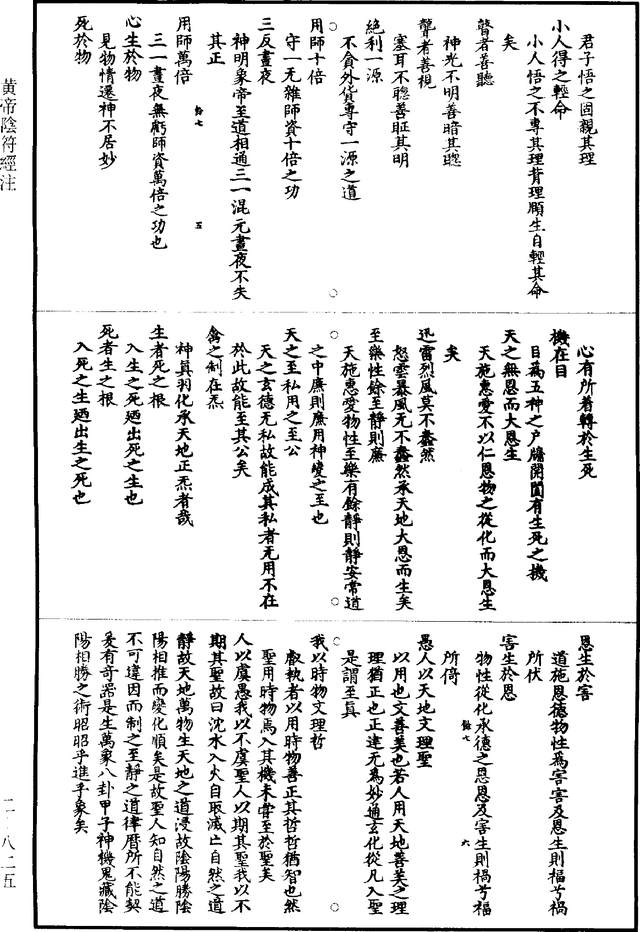 君子悟之固親其理
小人得之輕命
小人悟之不專其理背理願生自輕其命
矣
瞽者善聽
神光不明善暗其聰
聾者善視
塞耳不聰善眐其明
絕利一源
不貪外貨專守一源之道
用師十倍
守一无雜師資十倍之功
三反晝夜
神明象帝至道相通三一混元晝夜不失
其正
用師萬倍
三一晝夜無虧師資萬倍之功也
心生於物
見物情遷神不居妙
死於物
心有所着轉於生死
機在目
目為五神之户牖開闔有生死之機
天之無恩而大恩生
天施惠愛不以仁恩物之從化而大恩生
矣
迅雷烈風莫不蠢然
怒雲暴風无不蠢然承天地大恩而生矣
至樂性餘至靜則廉
天施惠愛物性至樂有餘靜則靜安常道
之中廉則廉用神變之至也
天之至私用之至公
天之玄德无私故能成其私者无用不在
於此故能至其公矣
禽之制在炁
神真羽化承天地正炁者哉
生者死之根
入生之死廼出死之生也
死者生之根
入死之生廼出生之死也
恩生於害
道施恩德物性為害害及恩生則福兮禍
所伏
害生於恩
物性從化承德之恩恩及害生則禍兮福
所倚
愚人以天地文理聖
以用也文善美也若人用天地善美之理
理猶正也正達无為妙通玄化從凡入聖
是謂至真
我以時物文理哲
叡執者以用時物善正其哲哲猶智也然
聖用時物焉入其機未嘗至於聖矣
人以虞愚我以不虞聖人以期其聖我以不
期其聖故曰沈水入火自取滅亡自然之道
靜故天地萬物生天地之道浸故陰陽勝陰
陽相推而變化順矣是故聖人知自然之道
不可違因而制之至靜之道律曆所不能契
爰有奇器是生萬象八卦甲子神機鬼藏陰
陽相勝之術昭昭乎進乎象矣
黃帝陰符經注
二一八二五
餘七
五
餘七
六